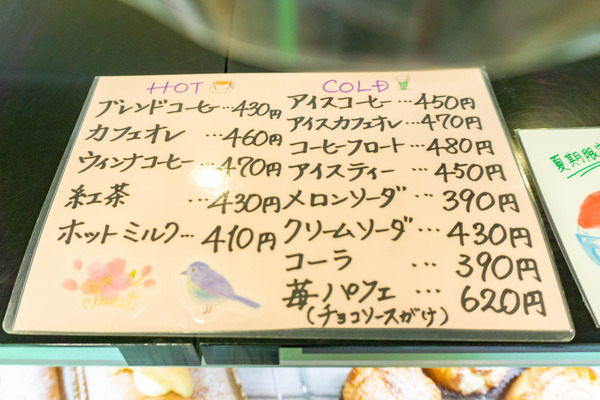 HOT
ブレンドコーヒー…430円
カフェオレ …460円
ウィンナコーヒー…470円
紅茶 …430円
ホットミルク…410円
Sweet
COLD
アイスコーヒー…450円
アイスカフェオレ…470円
コーヒーフロート…480円
アイスティー …450円
メロンソーダ …390円
クリームソーダ…430円
コーラ …390円
苺パフェ …620円
(チョコソースがけ)
夏期限